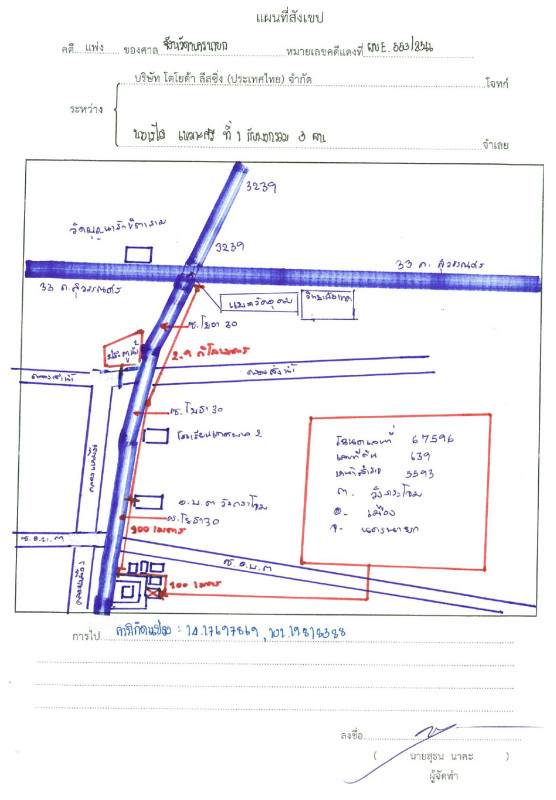 แผนที่สังเขป
คดี แพ่ง ของศาล จังหวัดนครนายก หมายเลขคดีแดงที่ ผบE. 553/2546
บริษัท โตโยต้า ลีสซิ่ง (ประเทศไทย) จำกัด โจทก์
ระหว่าง
ที่ 1 กับพวกรวม 3 คน จำเลย
3239
3239
33 ถ. สุวรรณศร
33 ถ. สุวรรณศร
ซ. โยธา 30
ประตูน้ำ
2.9 กิโลเมตร
คลองส่งน้ำ
คลองส่งน้ำ
ซ. โยธา 30
โรงเรียนเทศบาล 2
อ.บ.ต วังกระโจม
ซ. โยธา 30
900 เมตร
ซ.อ.บ.ต
ซ.อ.บ.ต
100 เมตร
โฉนดเลขที่ 67596
เลขที่ดิน 639
หน้าสำรวจ 5593
ต. วังกระโจม
อ. เมือง
จ. นครนายก
การไป ค่าพิกัดแปลง : 14.17697869, 101.19818388
ลงชื่อ
( นายสุธน นาคะ )
ผู้จัดทำ